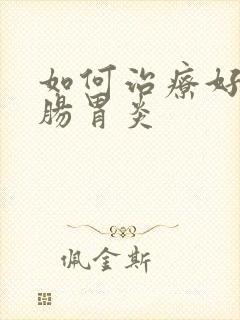 如何治療好
腸胃炎
佩金斯